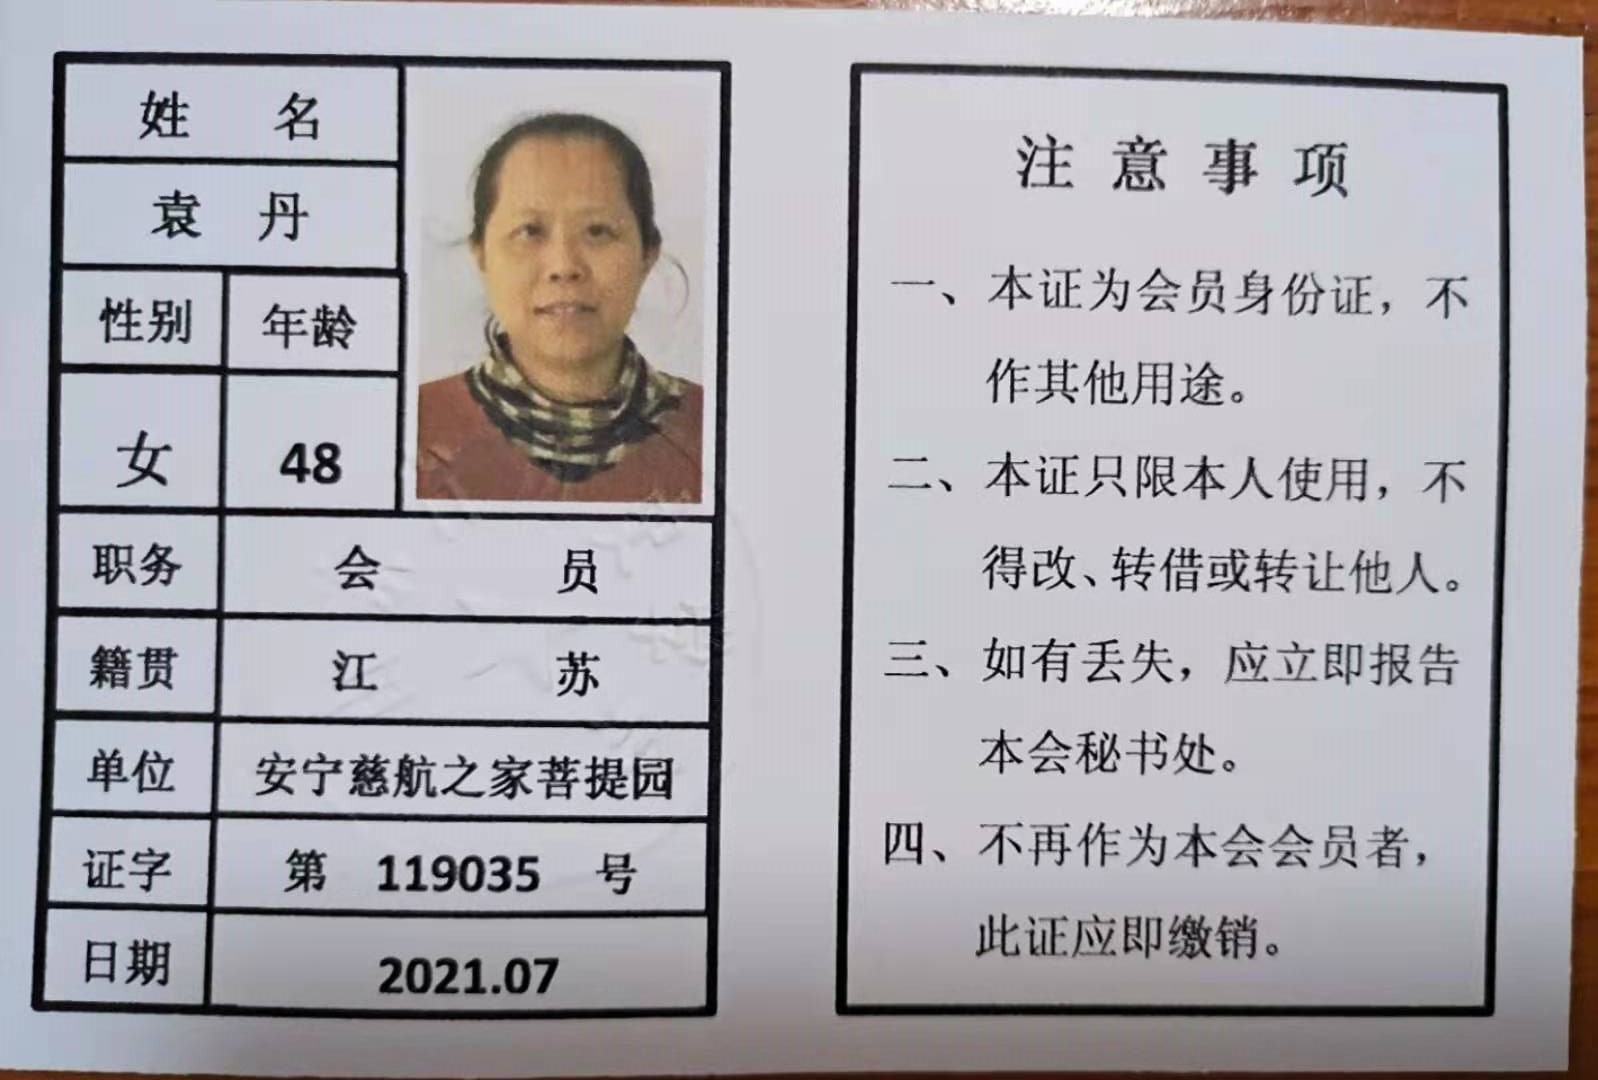 姓 名
袁 丹
性别 年龄
女 48
职务 会 员
籍贯 江 苏
单位 安宁慈航之家菩提园
证字 第 119035 号
日期 2021.07
注意事项
一、本证为会员身份证，不
作其他用途。
二、本证只限本人使用，不
得改、转借或转让他人。
三、如有丢失，应立即报告
本会秘书处。
四、不再作为本会会员者，
此证应即缴销。